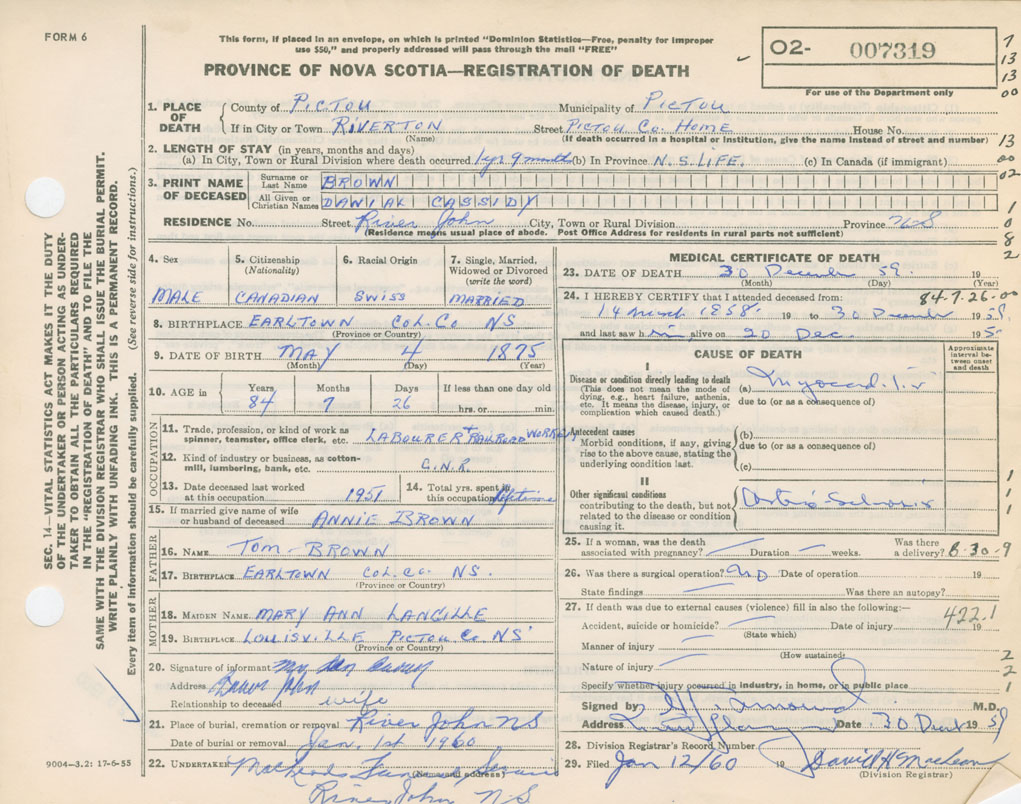 FORM 6
This form, if placed in an envelope, on which is printed "Dominion Statistics—Free, penalty for improper
use $50," and properly addressed will pass through the mail "FREE"
O2- 007319
PROVINCE OF NOVA SCOTIA—REGISTRATION OF DEATH
For use of the Department only
7
13
13
00
13
00
02
1
0
8
2
SEC. 14—VITAL STATISTICS ACT MAKES IT THE DUTY
OF THE UNDERTAKER OR PERSON ACTING AS UNDER-
TAKER TO OBTAIN ALL THE PARTICULARS REQUIRED
IN THE "REGISTRATION OF DEATH" AND TO FILE THE
SAME WITH THE DIVISION REGISTRAR WHO SHALL ISSUE THE BURIAL PERMIT.
WRITE PLAINLY WITH UNFADING INK. THIS IS A PERMANENT RECORD.
Every item of information should be carefully supplied. (See reverse side for instructions.)
1. PLACE OF DEATH
County of PICTOU Municipality of PICTOU
If in City or Town RIVERTON Street PICTOU CO. HOME House No.
(Name) (If death occurred in a hospital or institution, give the name instead of street and number)
2. LENGTH OF STAY (in years, months and days)
(a) In City, Town or Rural Division where death occurred 1 yr 9 months (b) In Province N.S. LIFE. (c) In Canada (if immigrant)
3. PRINT NAME OF DECEASED
Surname or Last Name BROWN
All Given or Christian Names DANIAL CASSIDY
RESIDENCE No. Street River John City, Town or Rural Division Province NS
(Residence means usual place of abode. Post Office Address for residents in rural parts not sufficient)
4. Sex 5. Citizenship (Nationality) 6. Racial Origin 7. Single, Married, Widowed or Divorced (write the word)
MALE CANADIAN SWISS MARRIED
8. BIRTHPLACE EARLTOWN COL. CO NS
(Province or Country)
9. DATE OF BIRTH MAY 4 1875
(Month) (Day) (Year)
10. AGE in Years Months Days If less than one day old
84 7 26 hrs. or min.
OCCUPATION
11. Trade, profession, or kind of work as spinner, teamster, office clerk, etc. LABOURER + RAILROAD WORKER
12. Kind of industry or business, as cotton-mill, lumbering, bank, etc. C.N.R.
13. Date deceased last worked at this occupation 1951 14. Total yrs. spent in this occupation lifetime
15. If married give name of wife or husband of deceased ANNIE BROWN
FATHER
16. NAME TOM BROWN
17. BIRTHPLACE EARLTOWN COL. CO. NS.
(Province or Country)
MOTHER
18. MAIDEN NAME MARY ANN LANGILLE
19. BIRTHPLACE LOUISVILLE PICTOU CO NS
(Province or Country)
20. Signature of informant
Address River John
Relationship to deceased wife
21. Place of burial, cremation or removal River John NS
Date of burial or removal Jan. 1st 1960
22. UNDERTAKER MacLeods Funeral Service
(Name and address)
River John NS
9004-3.2: 17-6-55
MEDICAL CERTIFICATE OF DEATH
23. DATE OF DEATH 30 December 59. 19
(Month) (Day) (Year)
84-7-26-00
24. I HEREBY CERTIFY that I attended deceased from:
14 March 1958 19 to 30 December 1959
and last saw him alive on 20 Dec. 195
CAUSE OF DEATH
Approximate interval between onset and death
I
Disease or condition directly leading to death
(This does not mean the mode of dying, e.g., heart failure, asthenia, etc. It means the disease, injury, or complication which caused death.)
(a) Myocarditis
due to (or as a consequence of)
Antecedent causes
Morbid conditions, if any, giving rise to the above cause, stating the underlying condition last.
(b)
due to (or as a consequence of)
(c)
II
Other significant conditions
contributing to the death, but not related to the disease or condition causing it.
1
1
1
25. If a woman, was the death associated with pregnancy? Duration weeks. Was there a delivery? 8-30-9
26. Was there a surgical operation? NO Date of operation 19
State findings Was there an autopsy?
27. If death was due to external causes (violence) fill in also the following:— 422.1
Accident, suicide or homicide? Date of injury 19
(State which)
Manner of injury
(How sustained)
Nature of injury
Specify whether injury occurred in industry, in home, or in public place
2
2
1
Signed by M.D.
Address Date 30 Dec 1959
28. Division Registrar's Record Number
29. Filed Jan 12/60 19 David H MacLean
(Division Registrar)